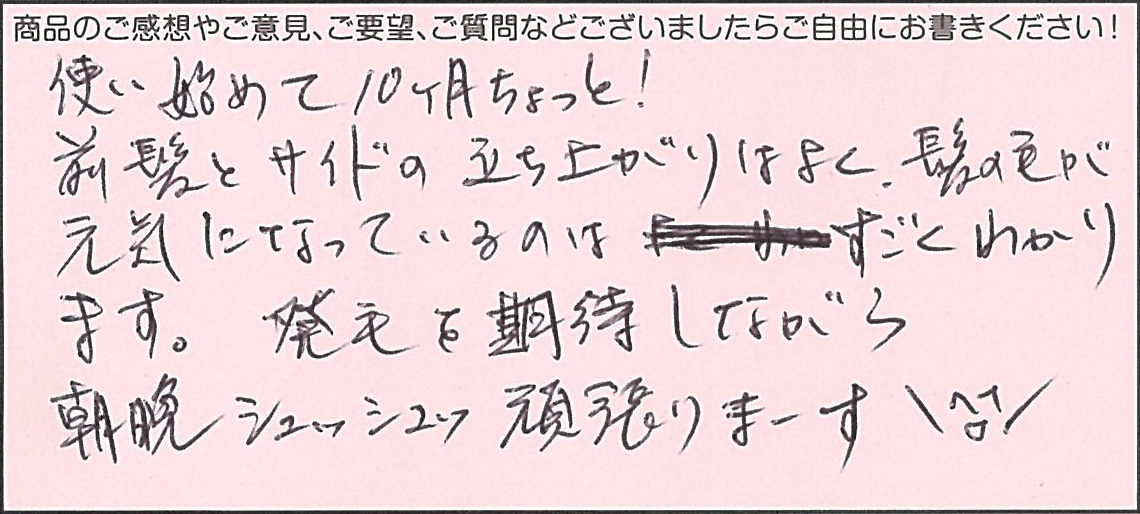 商品のご感想やご意見、ご要望、ご質問などございましたらご自由にお書きください!
使い始めて10ヶ月ちょっと!
前髪とサイドの立ち上がりはよく、髪の毛が
元気になっているのは すごくわかり
ます。 発毛を期待しながら
朝晩シュッシュッ頑張りまーす \^o^/